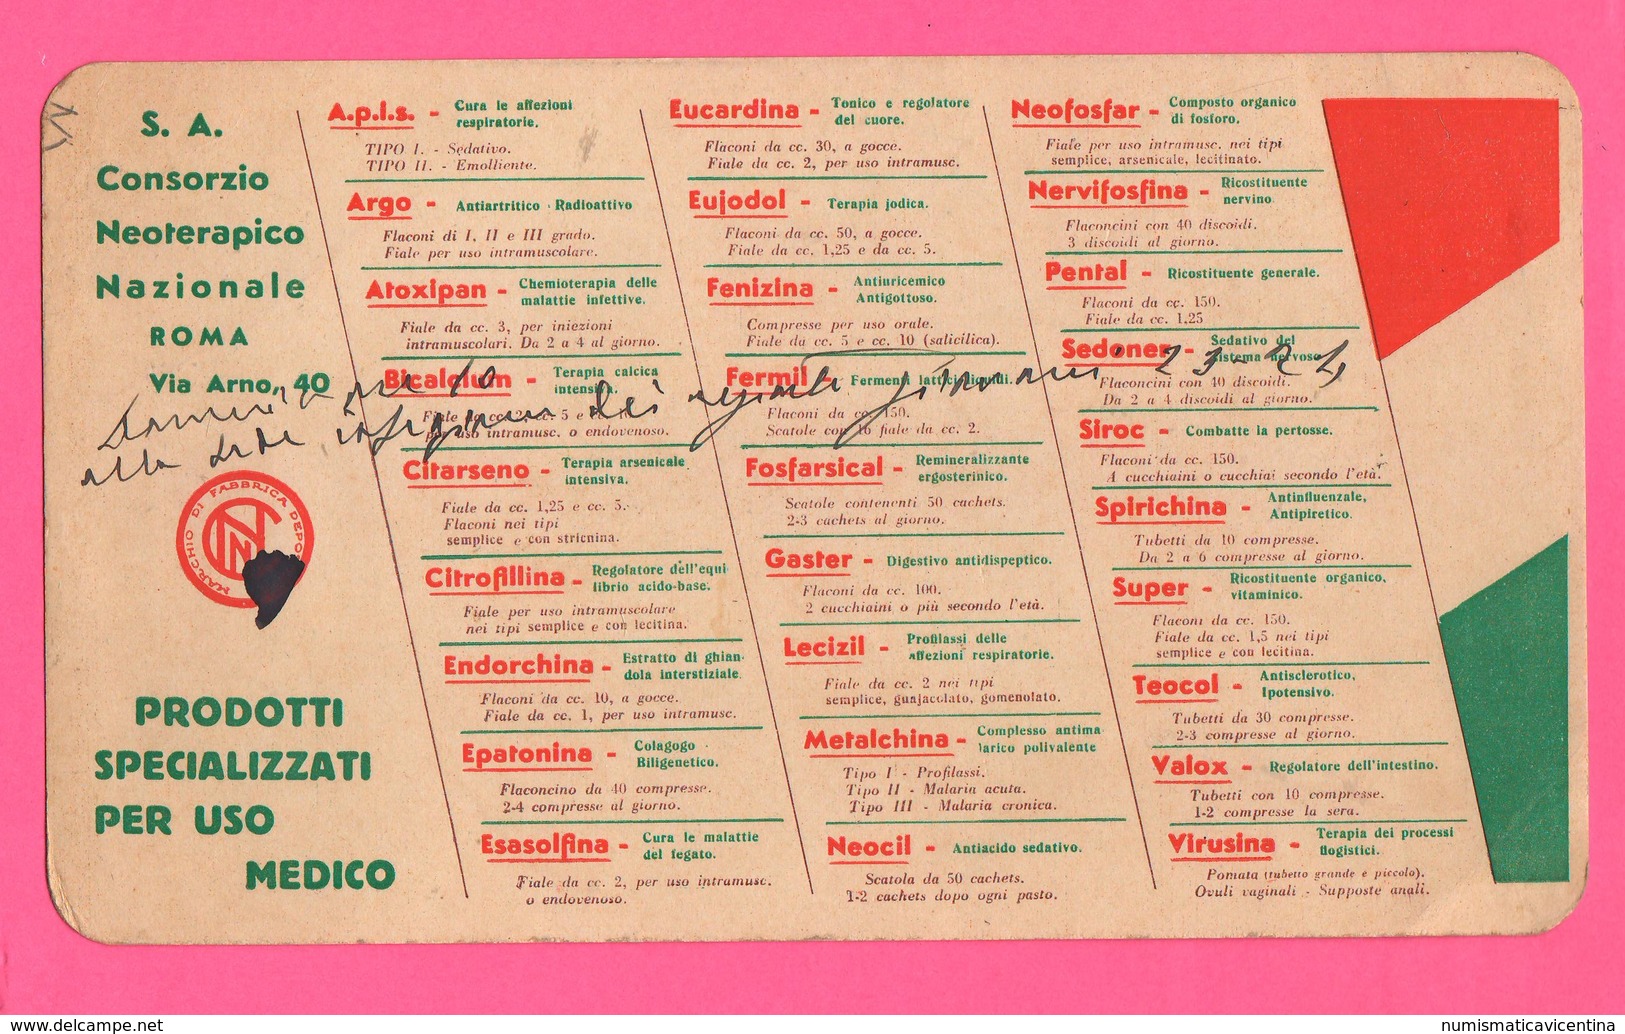 S. A.
Consorzio
Neoterapico
Nazionale
ROMA
Via Arno, 40
MARCHIO DI FABBRICA DEPO
CNN
PRODOTTI
SPECIALIZZATI
PER USO
MEDICO
A.p.i.s. - Cura le affezioni
respiratorie.
TIPO I. - Sedativo.
TIPO II. - Emolliente.
Argo - Antiartritico - Radioattivo
Flaconi di I, II e III grado.
Fiale per uso intramuscolare.
Atoxipan - Chemioterapia delle
malattie infettive.
Fiale da cc. 3, per iniezioni
intramuscolari. Da 2 a 4 al giorno.
Bicalcium - Terapia calcica
intensiva.
Fiale da cc. 2, cc. 5 e cc.
per uso intramusc. o endovenoso.
Citarseno - Terapia arsenicale
intensiva.
Fiale da cc. 1,25 e cc. 5.
Flaconi nei tipi
semplice e con stricnina.
Citrofillina - Regolatore dell'equi-
librio acido-base.
Fiale per uso intramuscolare
nei tipi semplice e con lecitina.
Endorchina - Estratto di ghian-
dola interstiziale.
Flaconi da cc. 10, a gocce.
Fiale da cc. 1, per uso intramusc.
Epatonina - Colagogo -
Biligenetico.
Flaconcino da 40 compresse.
2-4 compresse al giorno.
Esasolfina - Cura le malattie
del fegato.
Fiale da cc. 2, per uso intramusc.
o endovenoso.
Eucardina - Tonico e regolatore
del cuore.
Flaconi da cc. 30, a gocce.
Fiale da cc. 2, per uso intramusc.
Eujodol - Terapia jodica.
Flaconi da cc. 50, a gocce.
Fiale da cc. 1,25 e da cc. 5.
Fenizina - Antiuricemico
Antigottoso.
Compresse per uso orale.
Fiale da cc. 5 e cc. 10 (salicilica).
Fermil - Fermenti lattici liquidi.
Flaconi da cc. 150.
Scatole con 16 fiale da cc. 2.
Fosfarsical - Remineralizzante
ergosterinico.
Scatole contenenti 50 cachets.
2-3 cachets al giorno.
Gaster - Digestivo antidispeptico.
Flaconi da cc. 100.
2 cucchiaini o più secondo l'età.
Lecizil - Profilassi delle
affezioni respiratorie.
Fiale da cc. 2 nei tipi
semplice, guajacolato, gomenolato.
Metalchina - Complesso antima-
larico polivalente
Tipo I - Profilassi.
Tipo II - Malaria acuta.
Tipo III - Malaria cronica.
Neocil - Antiacido sedativo.
Scatola da 50 cachets.
1-2 cachets dopo ogni pasto.
Neofosfar - Composto organico
di fosforo.
Fiale per uso intramusc. nei tipi
semplice, arsenicale, lecitinato.
Nervifosfina - Ricostituente
nervino.
Flaconcini con 40 discoidi.
3 discoidi al giorno.
Pental - Ricostituente generale.
Flaconi da cc. 150.
Fiale da cc. 1,25
Sedoner - Sedativo del
sistema nervoso.
Flaconcini con 40 discoidi.
Da 2 a 4 discoidi al giorno.
Siroc - Combatte la pertosse.
Flaconi da cc. 150.
A cucchiaini o cucchiai secondo l'età.
Spirichina - Antinfluenzale,
Antipiretico.
Tubetti da 10 compresse.
Da 2 a 6 compresse al giorno.
Super - Ricostituente organico,
vitaminico.
Flaconi da cc. 150.
Fiale da cc. 1,5 nei tipi
semplice e con lecitina.
Teocol - Antisclerotico,
Ipotensivo.
Tubetti da 30 compresse.
2-3 compresse al giorno.
Valox - Regolatore dell'intestino.
Tubetti con 10 compresse.
1-2 compresse la sera.
Virusina - Terapia dei processi
flogistici.
Pomata (tubetto grande e piccolo).
Ovuli vaginali - Supposte anali.
ore 10
alla dei giorni 23-24
numismaticavicentina
www.delcampe.net